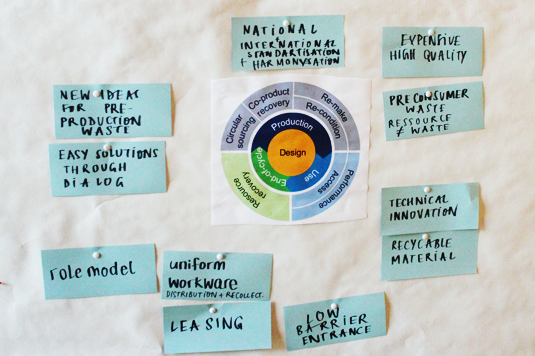 NATIONAL
+
INTERNATIONAL
STANDARTISATION
+ HARMONISATION
EXPENSIVE
HIGH QUALITY
NEW IDEAS
FOR PRE-
PRODUCTION
WASTE
PRECONSUMER
WASTE
RESSOURCE
≠ WASTE
EASY SOLUTIONS
THROUGH
DIALOG
Circular sourcing
Co-product recovery
Re-make
Re-condition
Production
Design
End-of-cycle
Use
Resource recovery
Performance
Access
TECHNICAL
INNOVATION
RECYCABLE
MATERIAL
role model
uniform
workware
DISTRIBUTION + RECOLLECT.
LEASING
LOW
BARRIER
ENTRANCE